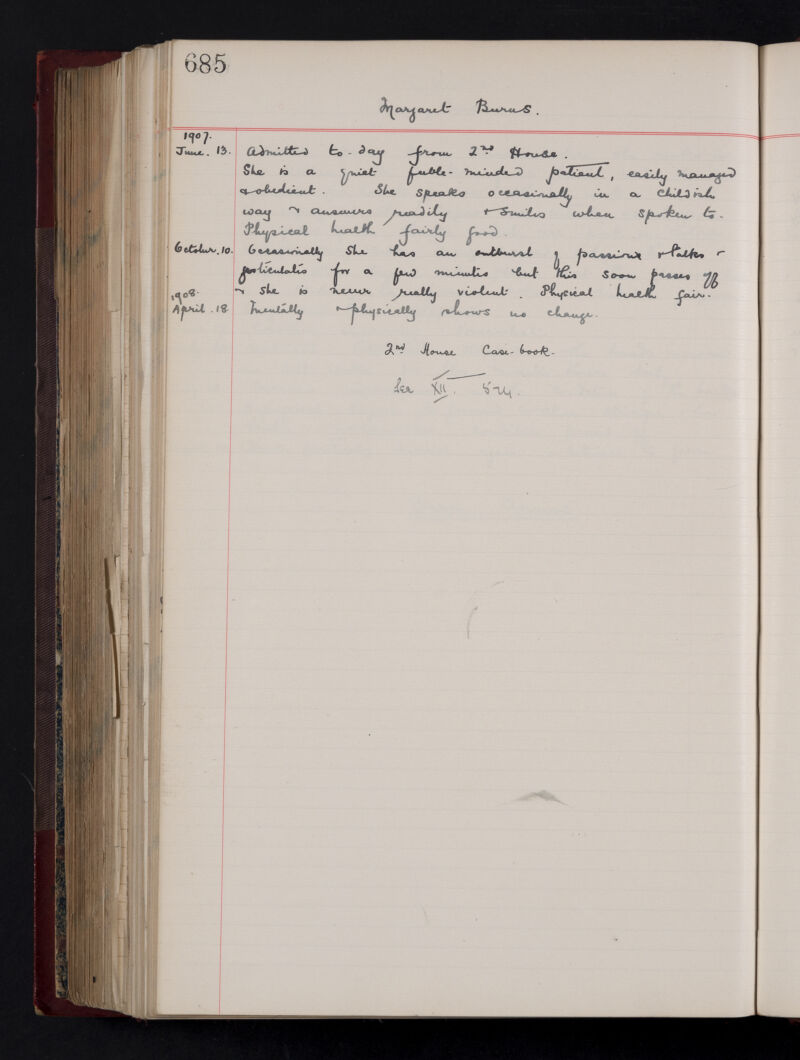 685
Margaret Burns.
1907.
June. 13. Admitted to-day from 2nd House.
She is a quiet feeble-minded patient, easily managed
& obedient. She speaks occasionally in a childish
way & answers readily & smiles when spoken to.
Physical health fairly good.
October. 10. Occasionally she has an outburst of passion & talks &
gesticulates for a few minutes but this soon passes off
& she is never really violent. Physical health fair.
1908.
April. 18 Mentally & physically shows no change.
2nd House Case-book.
See XII.